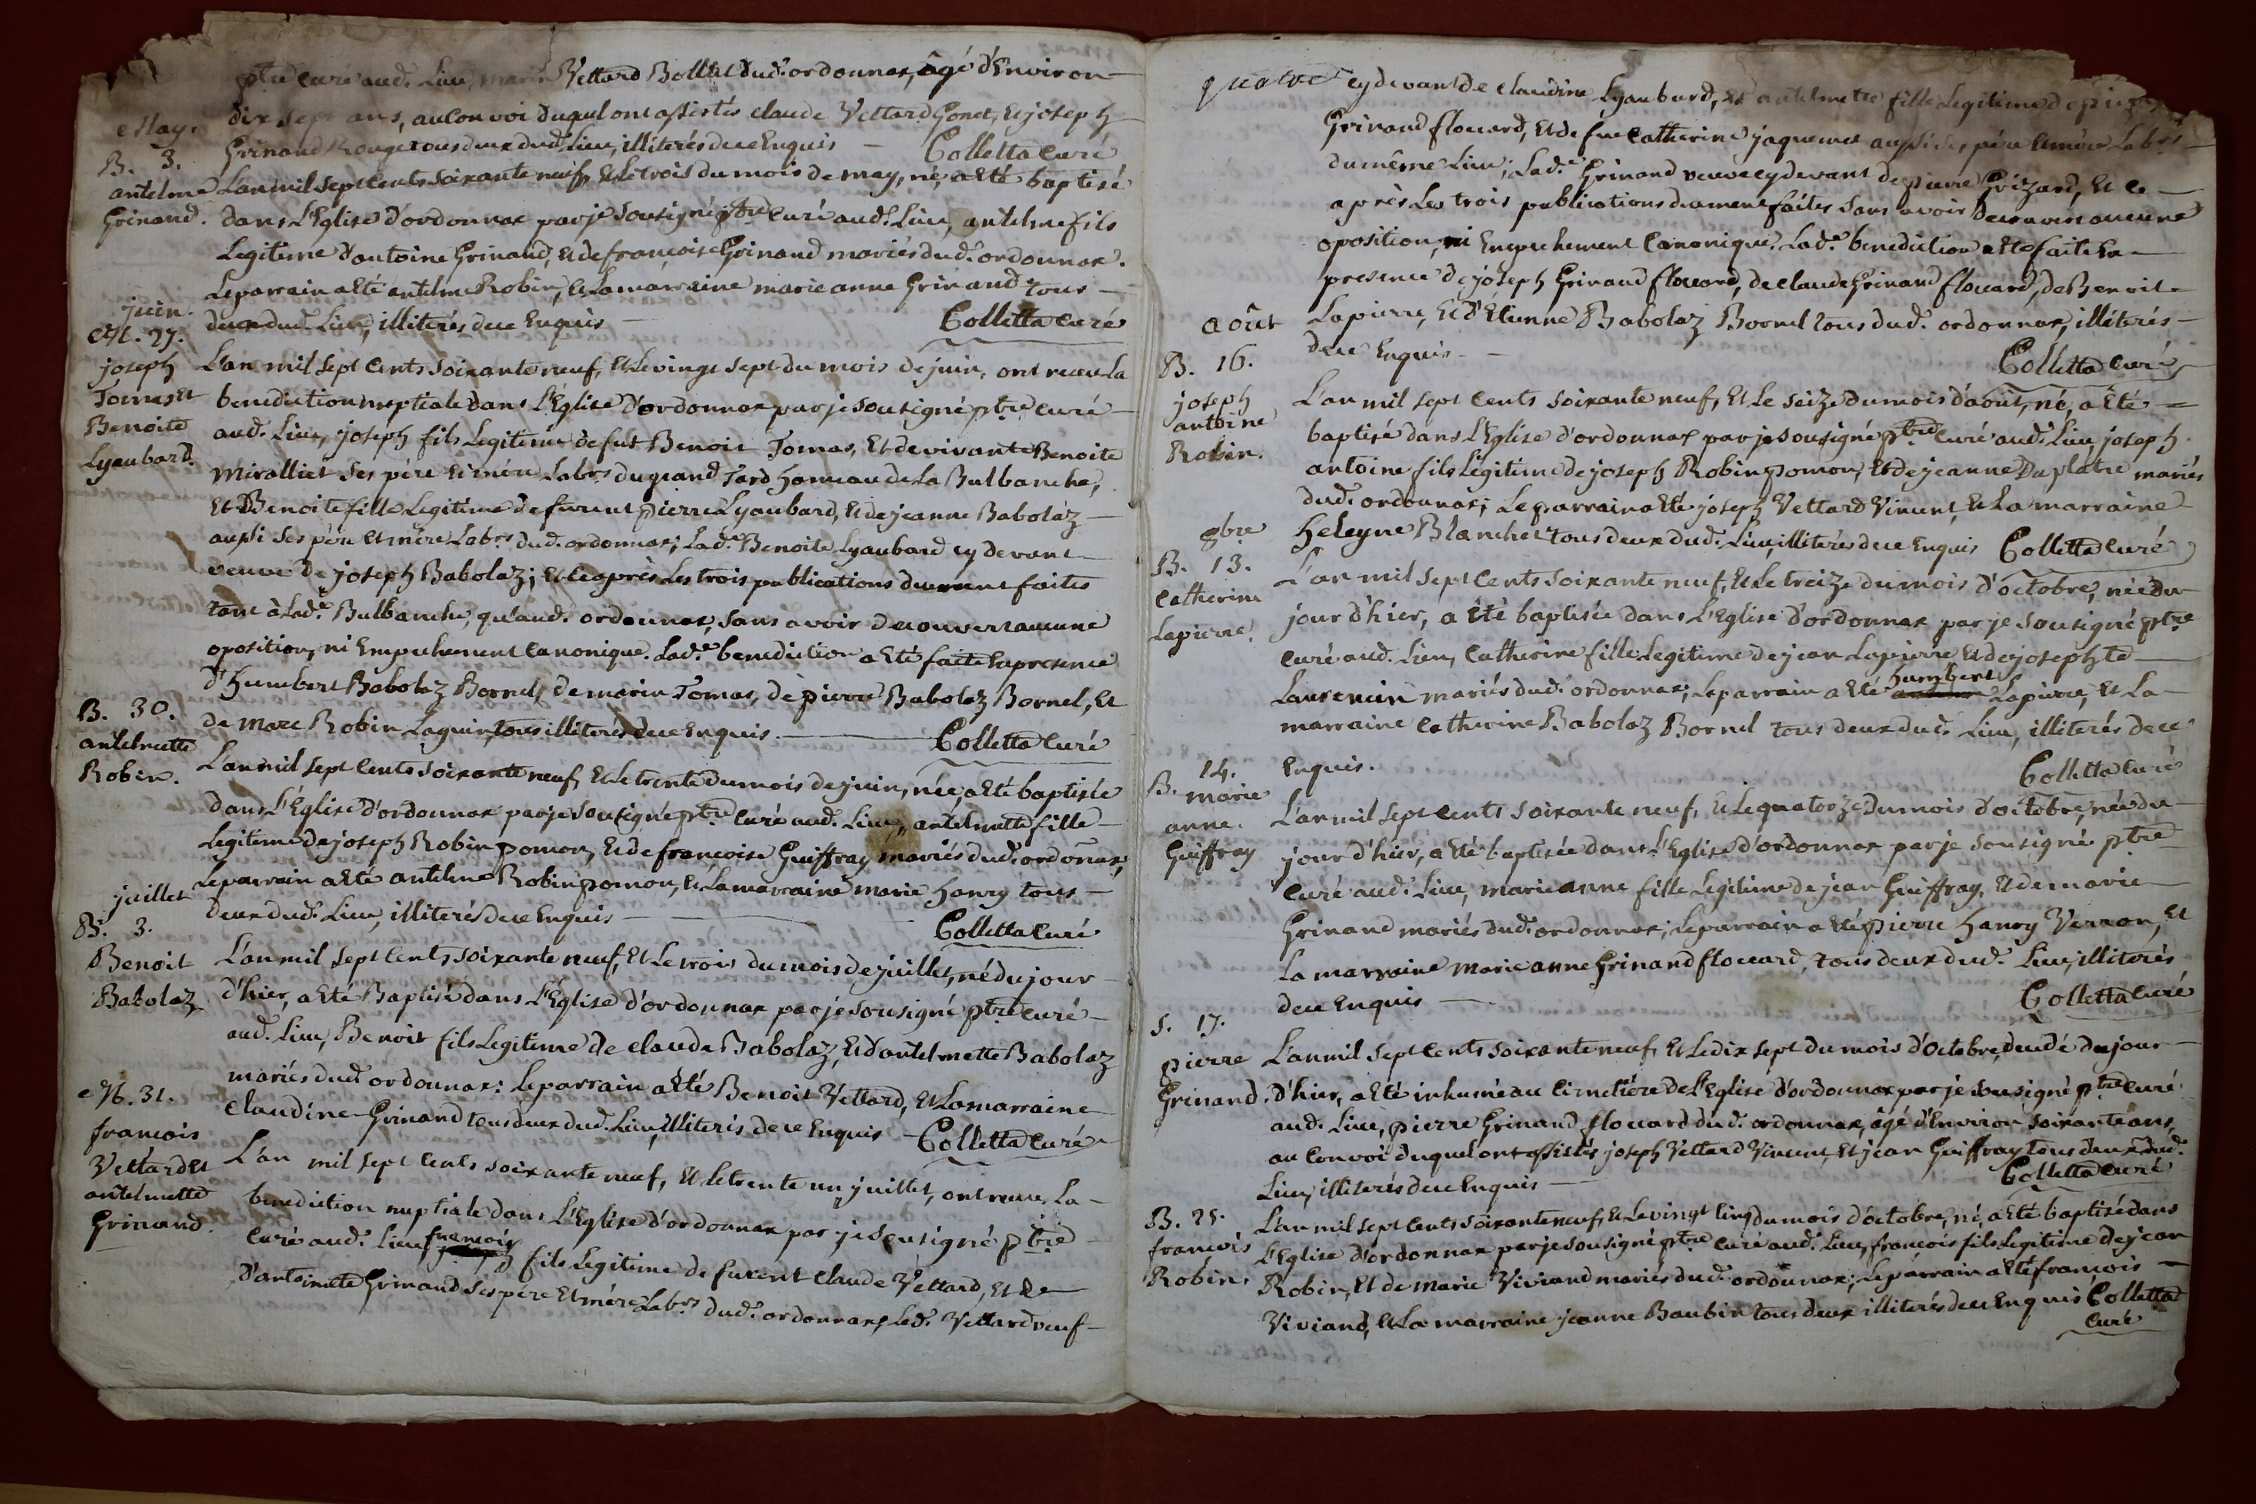 ptre curé aud. Lieu, marin Vettard Bolliet dud. ordonnax, âgé d'Environ
dix sept ans, au Convoi duquel ont assistés claude Vettard Gonet, Et joseph
may.
Grinand Rouge tous deux dud. Lieu, illiterés de ce Enquis — Colletta curé
B. 3.
antelme
Grinand.
L'an mil sept Cents soixante neuf, Et Le trois du mois de may, né, a Eté baptisé
dans L'Eglise d'ordonnax par je sousigné ptre Curé aud. Lieu, antelme fils
Legitime d'antoine Grinand, Et de françoise Grinand mariés dud. ordonnax.
Le parrain a Eté antelme Robin, Et La marraine marie anne Grinand tous
deux dud. Lieu, illiterés de ce Enquis — Colletta curé
juin.
M. 27.
joseph
Tomas Et
Benoite
Lyaubard.
L'an mil sept Cents soixante neuf, Et Le vingt sept du mois de juin, ont receu La
benediction nuptiale dans L'Eglise d'ordonnax par je sousigné ptre Curé
aud. Lieu, joseph fils Legitime de fut Benoit Tomas, Et de vivante Benoite
Miralliet ses père Et mère Labrs du grand Tard hameau de La Bulbanche,
Et Benoite fille Legitime de furent pierre Lyaubard, Et de jeanne Babolaz
aussi ses père Et mère Labrs dud. ordonnax; Lad.e Benoite Lyaubard cy devant
veuve de joseph Babolaz; Et ce après Les trois publications duement faites
tant à Lad.e Bulbanche, qu'aud. ordonnax, sans avoir decouvert aucune
oposition, ni Empechement Canonique. Lad.e benediction a Eté faite En presence
d'humbert Babolaz Bornel, de marin Tomas, de pierre Babolaz Bornel, Et
de marc Robin Laguin, tous illiterés de ce Enquis — Colletta Curé
B. 30.
antelmette
Robin.
L'an mil sept Cents soixante neuf, Et Le trente du mois de juin, née, a Eté baptisée
dans L'Eglise d'ordonnax par je sousigné ptre Curé aud. Lieu, antelmette fille
Legitime de joseph Robin pomon, Et de françoise Guiffray mariés dud. ordonnax,
Le parrain a Eté antelme Robin pomon, Et La marraine marie hanry tous
deux dud. Lieu, illiterés de ce Enquis — Colletta Curé
juillet
B. 3.
Benoit
Babolaz
L'an mil sept Cents soixante neuf, Et Le trois du mois de juillet, né du jour
d'hier, a Eté Baptisé dans L'Eglise d'ordonnax par je sousigné ptre Curé
aud. Lieu, Benoit fils Legitime de claude Babolaz, Et d'antelmette Babolaz
mariés dud. ordonnax: Le parrain a Eté Benoit Vettard, Et La marraine
claudine Grinand tous deux dud. Lieu, illiterés de ce Enquis — Colletta Curé
M. 31.
françois
Vettard Et
antelmette
Grinand
L'an mil sept Cents soixante neuf, Et Le trente un juillet, ont receu La
benediction nuptiale dans L'Eglise d'ordonnax par je sousigné ptre
Curé aud. Lieu, françois fils Legitime de furent claude Vettard, Et de
d'antoinette Grinand ses père Et mère Labrs dud. ordonnax, Led. Vettard veuf
quatre
cy devant de claudine Lyaubard, Et antelmette fille Legitime de pierre
Grinand flouard, Et de fue Catherine jaquemet aussi ses père Et mère Labrs
du même Lieu; Lad.e Grinand veuve cy devant de pierre Grizard, Et ce
après Les trois publications duement faites sans avoir decouvert aucune
oposition, ni Empechement Canonique. Lad.e benediction a Eté faite En
presence de joseph Grinand flouard, de claude Grinand flouard, de Benoit
Lapierre, Et d'Etienne Babolaz Bornel tous dud. ordonnax, illiterés
de ce Enquis — Colletta Curé
août
B. 16.
joseph
antoine
Robin.
L'an mil sept Cents soixante neuf, Et Le seize du mois d'août, né, a Eté
baptisé dans L'Eglise d'ordonnax par je sousigné ptre Curé aud. Lieu joseph
antoine fils Legitime de joseph Robin pomon, Et de jeanne Duplatre mariés
dud. ordonnax; Le parrain a Eté joseph Vettard Vincent, Et La marraine
heleyne Blanchet tous deux dud. Lieu, illiterés de ce Enquis Colletta Curé
8bre
B. 13.
Catherine
Lapierre.
L'an mil sept Cents soixante neuf, Et Le treize du mois d'octobre, née du
jour d'hier, a Eté baptisée dans L'Eglise d'ordonnax par je sousigné ptre
Curé aud. Lieu, Catherine fille Legitime de jean Lapierre Et de josephte
Laurencin mariés dud. ordonnax; Le parrain a Eté humbert Lapierre, Et La
marraine Catherine Babolaz Bornel tous deux dud. Lieu, illiterés de ce
Enquis. Colletta Curé
B. 14.
marie
anne
Guiffray
L'an mil sept Cents soixante neuf, Et Le quatorze du mois d'octobre, née du
jour d'hier, a Eté baptisée dans L'Eglise d'ordonnax par je sousigné ptre
Curé aud. Lieu, marie anne fille Legitime de jean Guiffray, Et de marie
Grinand mariés dud. ordonnax; Le parrain a Eté pierre hanry Vernon, Et
La marraine marie anne Grinand flouard, tous deux dud. Lieu, illiterés
de ce Enquis — Colletta Curé
S. 17.
pierre
Grinand.
L'an mil sept Cents soixante neuf, Et Le dix sept du mois d'octobre, decedé du jour
d'hier, a Eté inhumé au Cimetière de L'Eglise d'ordonnax par je sousigné ptre Curé
aud. Lieu, pierre Grinand flouard dud. ordonnax, âgé d'Environ soixante ans,
au Convoi duquel ont assistés joseph Vettard Vincent, Et jean Guiffray tous deux dud.
Lieu, illiterés de ce Enquis — Colletta Curé
B. 25.
françois
Robin.
L'an mil sept Cents soixante neuf, Et Le vingt Cinq du mois d'octobre, né, a Eté baptisé dans
L'Eglise d'ordonnax par je sousigné ptre Curé aud. Lieu, françois fils Legitime de jean
Robin, Et de marie Viviand mariés dud. ordonnax; Le parrain a Eté françois
Viviand, Et La marraine jeanne Baubin tous deux illiterés de ce Enquis Colletta
Curé